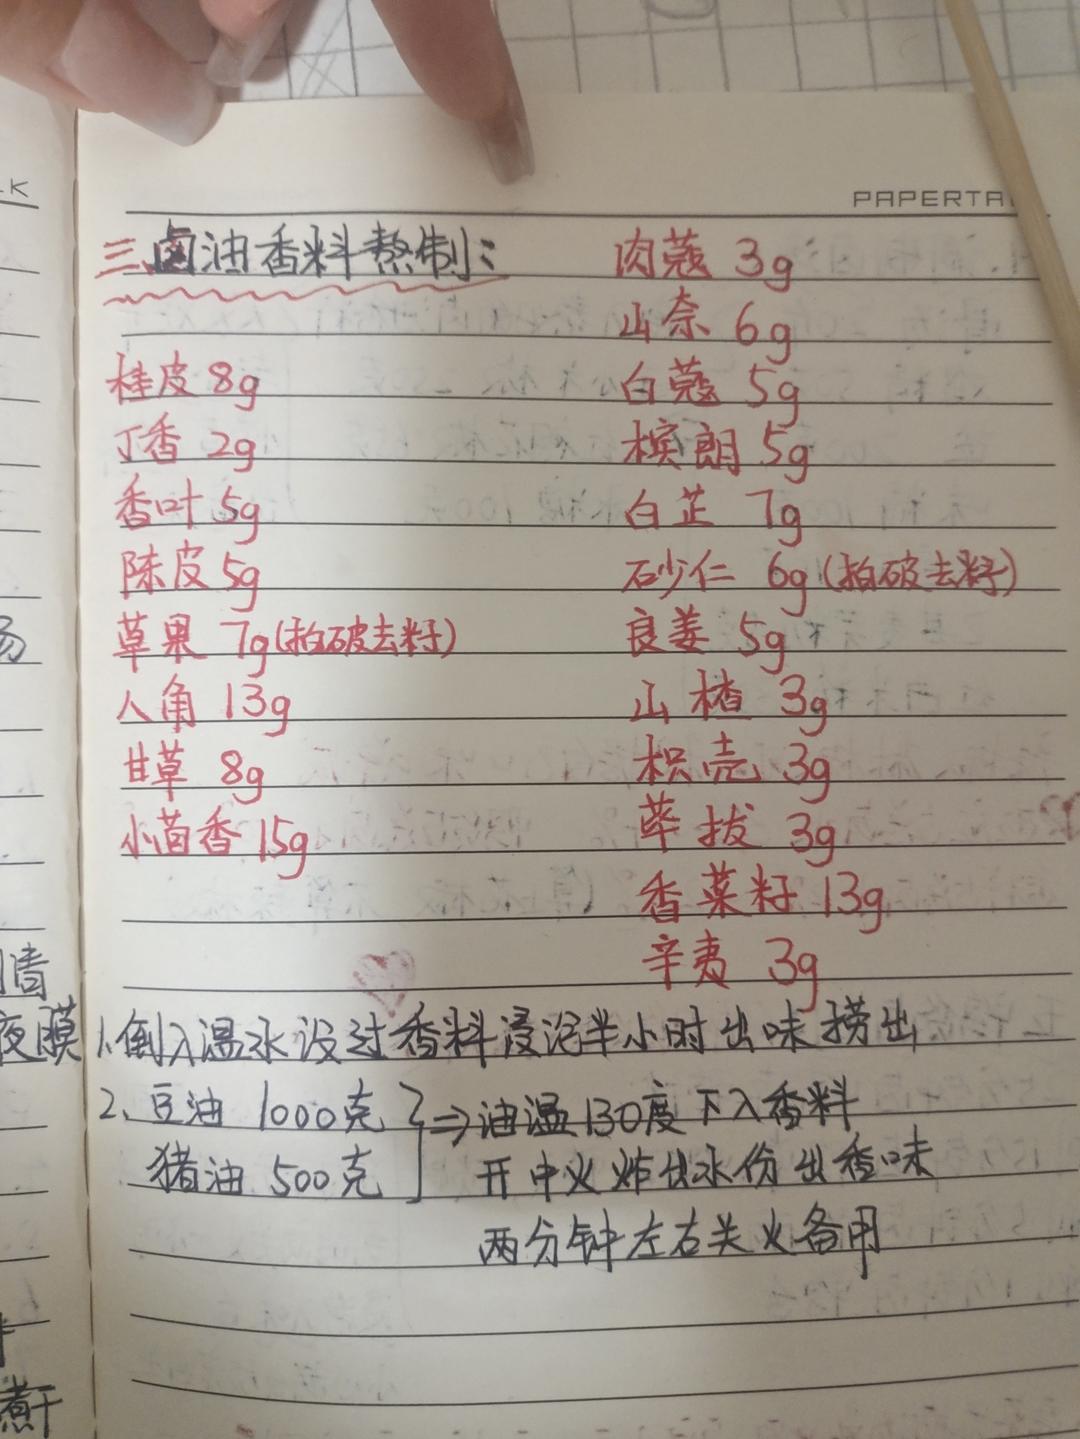 PAPERTA
三、卤油香料熬制：
桂皮 8g
丁香 2g
香叶 5g
陈皮 5g
草果 7g(拍破去籽)
八角 13g
甘草 8g
小茴香 15g
肉蔻 3g
山奈 6g
白蔻 5g
槟朗 5g
白芷 7g
砂仁 6g(拍破去籽)
良姜 5g
山楂 3g
枳壳 3g
荜拔 3g
香菜籽 13g
辛夷 3g
1.倒入温水没过香料浸泡半小时出味捞出
2、豆油 1000克 }⇒油温130度下入香料
猪油 500克 开中火炸出水份出香味
两分钟左右关火备用